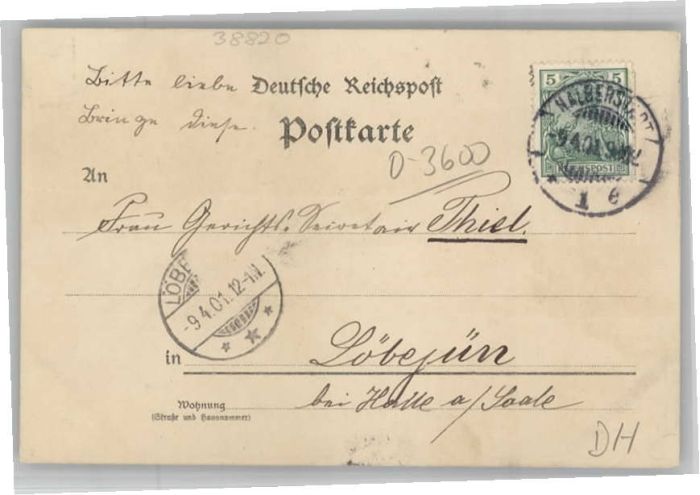 38820
Bitte liebe Deutsche Reichspost
Bringe diese. Postkarte
5 5
HALBERSTADT
-9.4.01.9-
REICHSPOST
1 e
O-3600
An
Frau Gerichts-Secretair Thiel.
LÖBE
-9.4.01.12-1.N.
in Löbejün
Wohnung bei Halle a/Saale
(Straße und Hausnummer)
DH